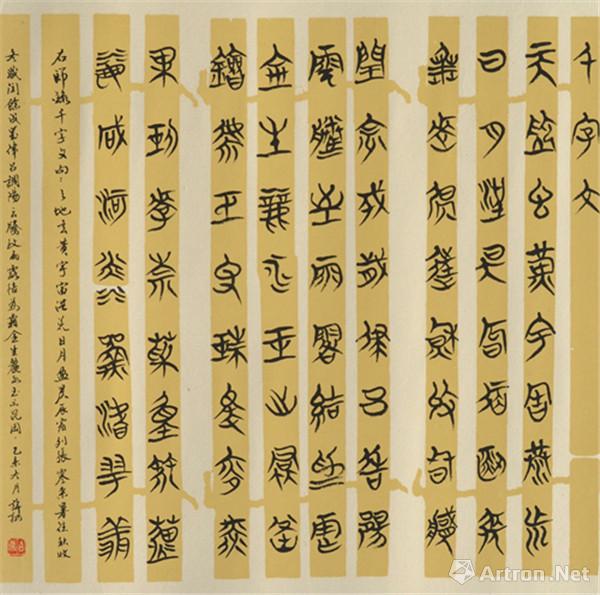 千字文
天地玄黃宇宙洪荒
日月盈昃辰宿列張
寒來暑往秋收冬藏
閏餘成歲律呂調陽
雲騰致雨露結為霜
金生麗水玉出崑岡
劍號巨闕珠稱夜光
果珍李柰菜重芥薑
海鹹河淡鱗潛羽翔
右師千字文句天地玄黃宇宙洪荒日月盈昃辰宿列張寒來暑往秋收
冬藏閏餘成歲律呂調陽雲騰致雨露結為霜金生麗水玉出崑岡乙未六月
Artron.Net